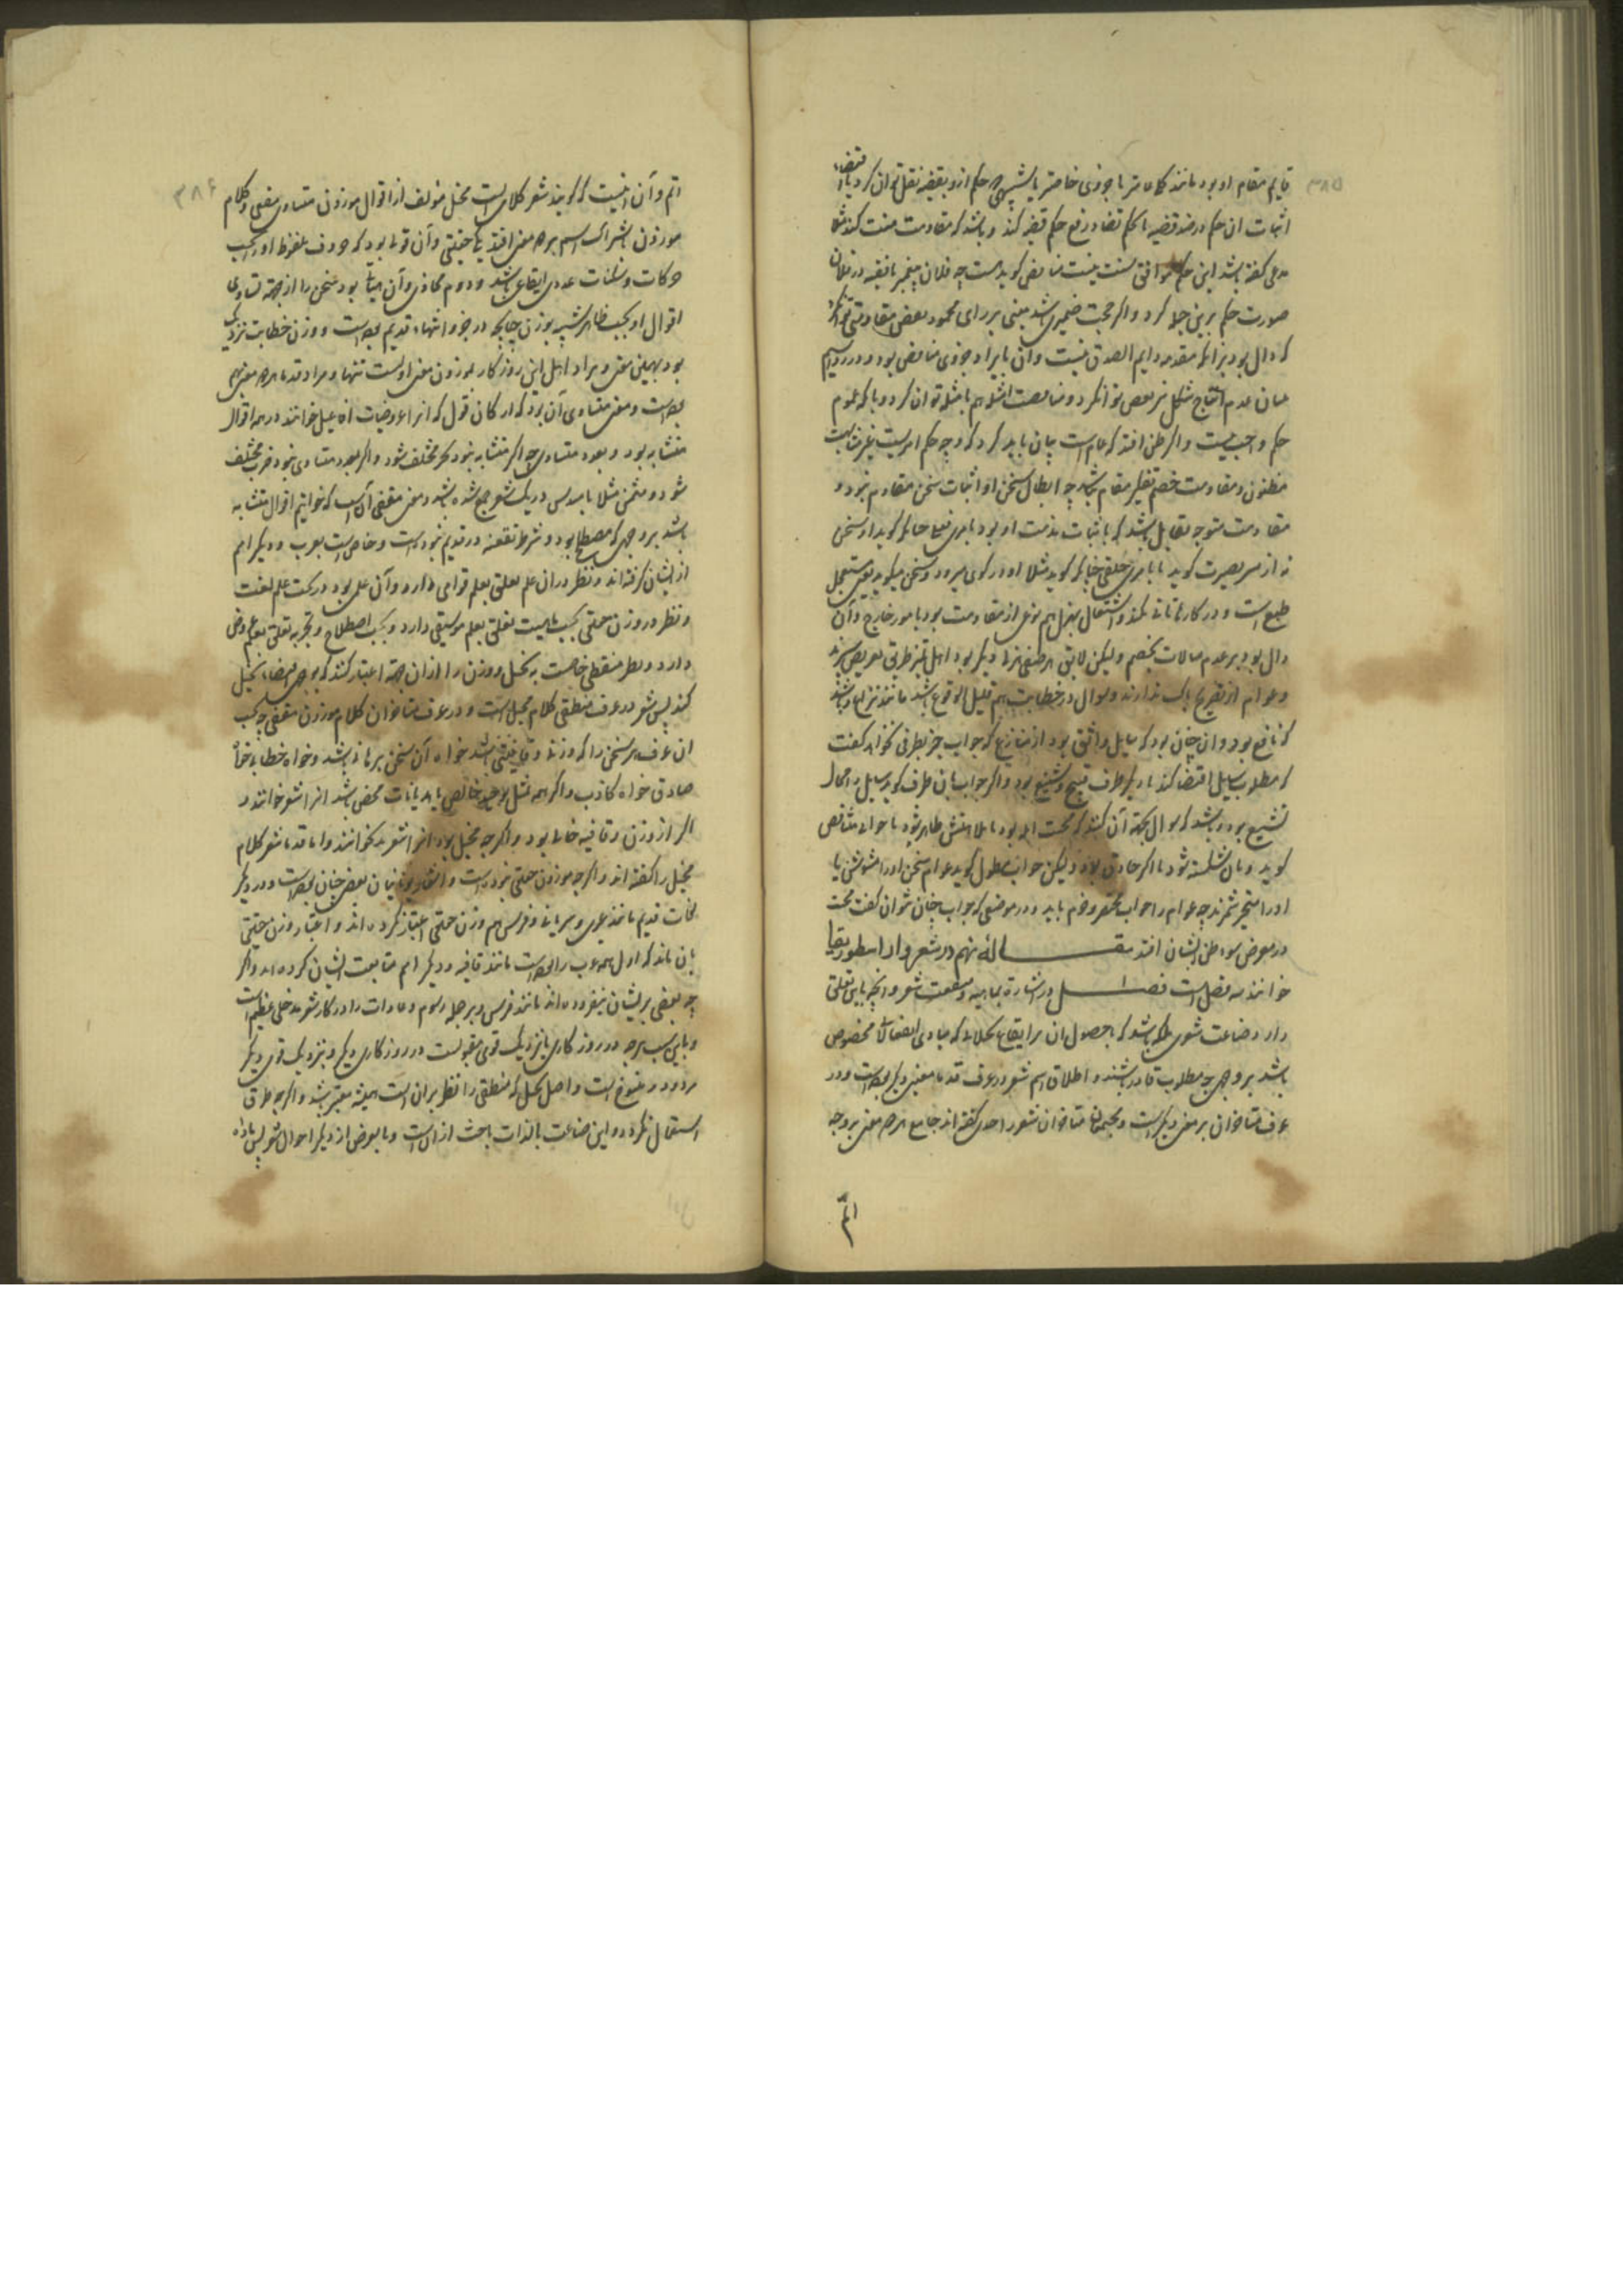 ۳۸۵
قایم مقام او بود مانند کلی تر یا جزوی خاصتر یا شبیهی چه حکم ازو بقضیه نقل توان کرد یا اقتضاء
اثبات ان حکم در ضد قضیه
مدعی گفته باشد این حکم موافق سنت نیست مناقض گوید هست چه فلان پیغمبر یا فقیه در فلان
صورت حکم برین جمله کرد و اگر حجت ضمیری باشد مبنی بر رای محمود بعضی مقاومتی تواند کرد
که دال بود بر انکه مقدمه دایم الصدق نیست وان بایراد جزوی مناقض بود و در
بیان عدم انتاج شکل نیز بعضی تواند کرد و مناقضت امثله هم بامثله توان کرد و یا که عموم
حکم واجب نیست و اگر ظن افتد که عام است بیان باید کرد که وجه حکم امریست غیر ثابت
مظنون و مقاومت خصم بتفکیر مقام باشد چه ابطال سخن او اثبات سخن مقاوم نبود و
مقاومت متوجه بقایل باشد که یا باثبات مذمت او بود بامری فعلی چنانکه گوید او سخن
نه از سر بصیرت گوید یا بامری خلقی چنانکه گوید مثلا او در کوی میرود و سخن میگوید یعنی مستعجل
طبع است و در کارها تانی نکند و اشتغال بهزل هم نوعی از مقاومت بود بامور خارج و آن
دال بود بر عدم مبالات بخصم و لیکن لایق هر صنفی هزلی دیگر بود اهل تمیز طریق تعریض سپرند
و عوام از تصریح باک ندارند و سوال در خطابت هم قلیل الوقوع باشد مانند نزاع و باشد
که نافع بود وان چنان بود که سایل واثق بود از منازع که جواب جز بطرفی نخواهد گفت
که مطلوب سایل اقتضا کند یا دیگر طرف قبیح و شنیع بود و اگر جواب بان طرف گوید سایل را مجال
تشنیع بود و باشد که سوال بجهة آن کنند که حجت
گوید و بان شکسته شود یا اگر حاذق بود و لیکن جواب مطول گوید عوام سخن او را مشوش یا
او را متحیر شمرند چه عوام را جواب مختصر و فهم باید و در موضعی که جواب چنان نتوان گفت حجت
در معرض سوء ظن ایشان افتد مقاله نهم در شعر و انرا بطوریقا
خوانند سه فصل است فصل ا در اشارة بماهیه و منفعت شعر و انچه باین تعلق
دارد صناعت شعری ملکه باشد که با حصول ان بر ایقاع تخیلاتی که مبادی انفعالاتی مخصوص
باشد بر وجهی مطلوب قادر باشند و اطلاق اسم شعر در عرف قدما بمعنی دیگر بوده است و در
عرف متاخران بر معنی دیگرست و محققان متاخران شعر را حدی گفته اند جامع هر دو معنی بر وجه
اتم
۳۸۶
اتم و آن اینست که گویند شعر کلامی است مخیل مولف از اقوال موزون متساوی مقفی و کلام
موزون باشتراک اسم بر دو معنی افتد یکی حقیقی و آن قولی بود که حروف ملفوظ او را بحسب
حرکات و سکنات عددی ایقاعی باشد و دوم مجازی و آن هیأتی بود سخن را از جهة تساوی
اقوال او بحسب ظاهر شبیه بوزن چنانچه در خسروانیهاء قدیم بوده است و وزن خطابت نزدیک
بود بهمین معنی و مراد اهل این روزگار بموزون معنی اولست تنها و مراد قدما هر دو معنی
بوده است و معنی متساوی آن بود که ارکان قول که انرا عروضیان افاعیل خوانند در همه اقوال
متشابه بود و بعدد متساوی چه اگر متشابه نبود بحر مختلف شود و اگر بعدد متساوی نبود ضرب مختلف
شود و مثمن مثلا با مسدس در یک شعر جمع شده باشد و معنی مقفی آنست که خواتیم اقوال متشابه
باشد بر وجهی که مصطلح بود و شرط تقفیه در قدیم نبوده است و خاص است بعرب و دیگر امم
از ایشان گرفته اند و نظر در ان علم تعلق بعلم قوافی دارد و آن علمی بود در تحت علم لغت
و نظر در وزن حقیقی بحسب ماهیت تعلق بعلم موسیقی دارد و بحسب اصطلاح و تجربه تعلق بعلم عروض
دارد و نظر منطقی خاصست به تخییل و وزن را از ان جهة اعتبار کند که بوجهی اقتضاء تخییل
کند پس شعر در عرف منطقی کلام مخیل است و در عرف متاخران کلام موزون مقفی چه بحسب
ان عرف هر سخن را که وزنی و قافیتی باشد خواه آن سخن برهانی باشد و خواه خطابی خواه
صادق خواه کاذب و اگر همه بمثل توحید خالص یا هذیانات محض باشد انرا شعر خوانند و
اگر از وزن و قافیه خالی بود و اگرچه مخیل بود انرا شعر نخوانند و اما قدما شعر کلام
مخیل را گفته اند و اگرچه موزون حقیقی نبوده است و اشعار یونانیان بعضی چنان بوده است و در دیگر
لغات قدیم مانند عبری و سریانی و فرسی هم وزن حقیقی اعتبار نکرده اند و اعتبار وزن حقیقی
بان ماند که اول همه عرب را بوده است مانند قافیه و دیگر امم متابعت ایشان کرده اند و اگر
چه بعضی بر ایشان بیفزوده اند مانند فرس و بر جمله رسوم و عادات را در کار شعر مدخلی عظیم است
و باین سبب هرچه در روزگاری یا نزدیک قومی مقبولست در روزگاری دیگر و نزدیک قومی دیگر
مردود و منسوخ است و اصل تخییل که منطقی را نظر بران است همیشه معتبر باشد و اگرچه طرق
استعمال بگردد و این صناعت بالذات باحث ازانست و بالعرض از دیگر احوال شعر پس ماده